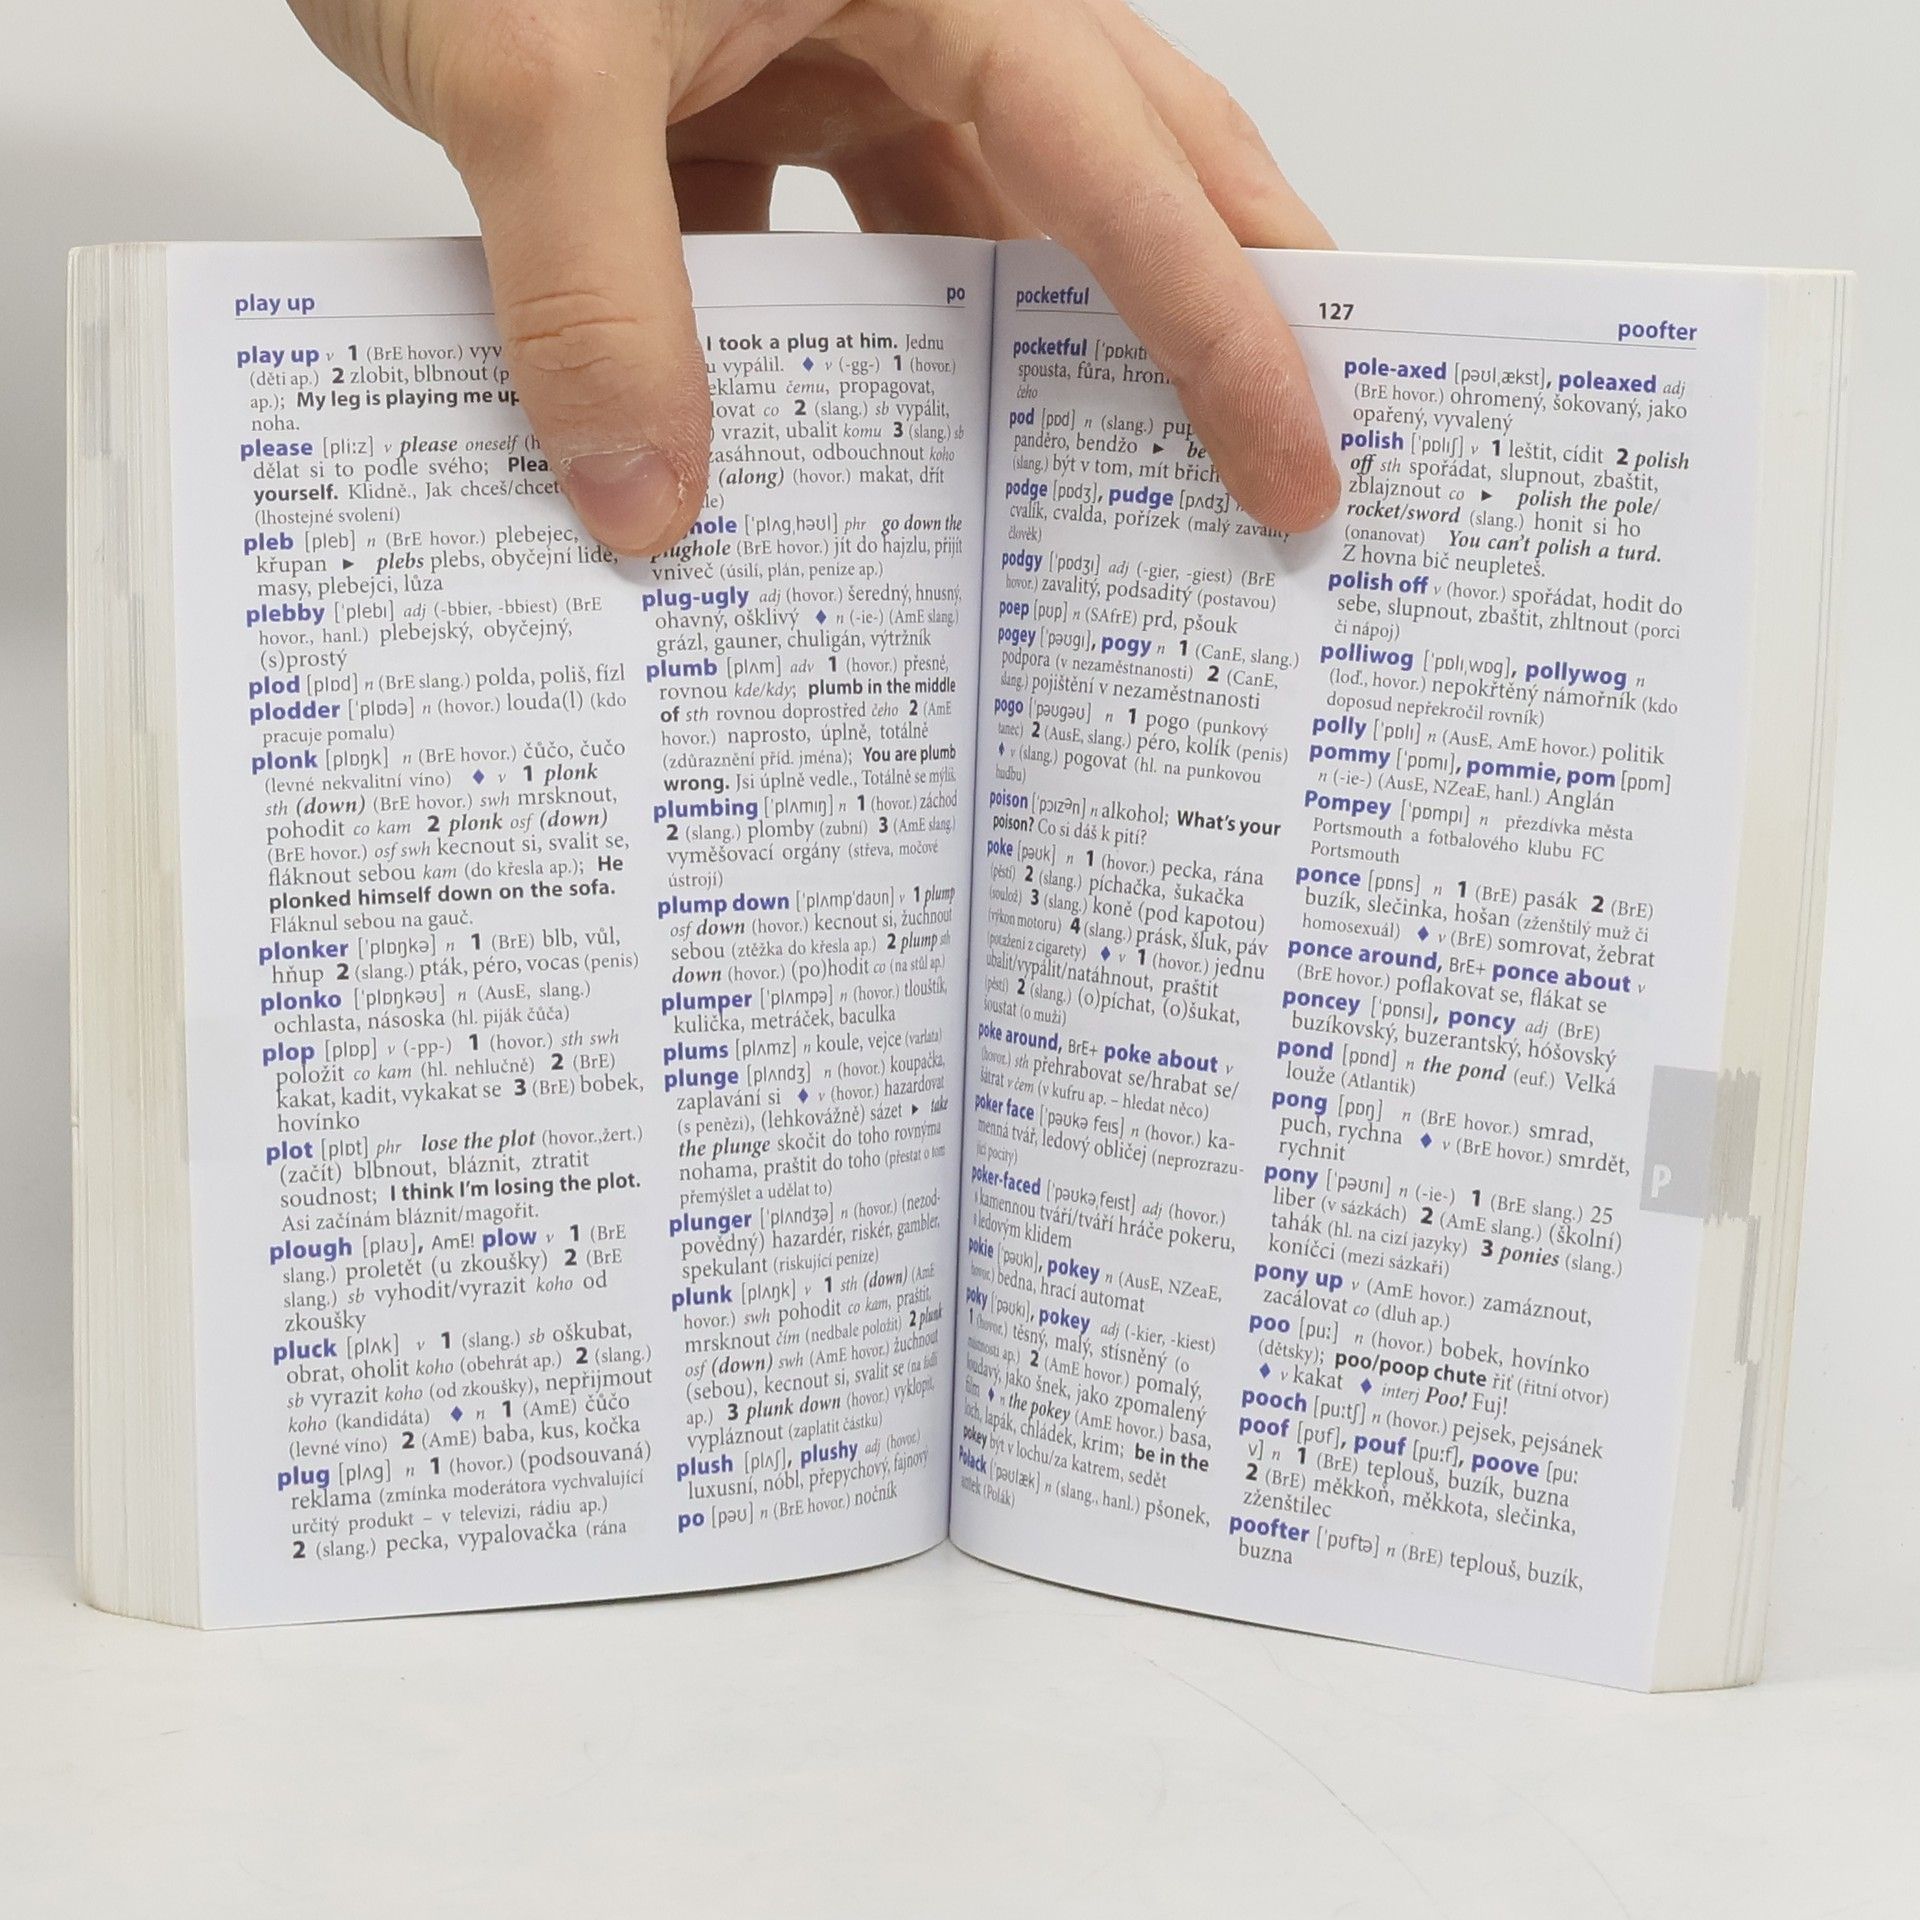 play up
po
play up v 1 (BrE hovor.)
(děti ap.) 2 zlobit, blbnout
ap.); My leg is playing me
noha.
please [pli:z] v please oneself
dělat si to podle svého;
yourself. Klidně., Jak chceš/
(lhostejné svolení)
pleb [pleb] n (BrE hovor.) plebejec,
křupan ► plebs plebs, obyčejní lidé,
masy, plebejci, lůza
plebby [ˈplebɪ] adj (-bbier, -bbiest) (BrE
hovor., hanl.) plebejský, obyčejný,
(s)prostý
plod [plɒd] n (BrE slang.) polda, poliš, fízl
plodder [ˈplɒdə] n (hovor.) louda(l) (kdo
pracuje pomalu)
plonk [plɒŋk] n (BrE hovor.) čůčo, čučo
(levné nekvalitní víno) ♦ v 1 plonk
sth (down) (BrE hovor.) swh mrsknout,
pohodit co kam 2 plonk osf (down)
(BrE hovor.) osf swh kecnout si, svalit se,
fláknout sebou kam (do křesla ap.); He
plonked himself down on the sofa.
Fláknul sebou na gauč.
plonker [ˈplɒŋkə] n 1 (BrE) blb, vůl,
hňup 2 (slang.) pták, péro, vocas (penis)
plonko [ˈplɒŋkəʊ] n (AusE, slang.)
ochlasta, násoska (hl. piják čůča)
plop [plɒp] v (-pp-) 1 (hovor.) sth swh
položit co kam (hl. nehlučně) 2 (BrE)
kakat, kadit, vykakat se 3 (BrE) bobek,
hovínko
plot [plɒt] phr lose the plot (hovor.,žert.)
(začít) blbnout, bláznit, ztratit
soudnost; I think I'm losing the plot.
Asi začínám bláznit/magořit.
plough [plaʊ], AmE! plow v 1 (BrE
slang.) proletět (u zkoušky) 2 (BrE
slang.) sb vyhodit/vyrazit koho od
zkoušky
pluck [plʌk] v 1 (slang.) sb oškubat,
obrat, oholit koho (obehrát ap.) 2 (slang.)
sb vyrazit koho (od zkoušky), nepřijmout
koho (kandidáta) ♦ n 1 (AmE) čůčo
(levné víno) 2 (AmE) baba, kus, kočka
plug [plʌg] n 1 (hovor.) (podsouvaná)
reklama (zmínka moderátora vychvalující
určitý produkt – v televizi, rádiu ap.)
2 (slang.) pecka, vypalovačka (rána
I took a plug at him. Jednu
vypálil. ♦ v (-gg-) 1 (hovor.)
čemu, propagovat,
co 2 (slang.) sb vypálit,
vrazit, ubalit komu 3 (slang.) sb
zasáhnout, odbouchnout koho
(along) (hovor.) makat, dřít
[ˈplʌgˌhəʊl] phr go down the
plughole (BrE hovor.) jít do hajzlu, přijít
vniveč (úsilí, plán, peníze ap.)
plug-ugly adj (hovor.) šeredný, hnusný,
ohavný, ošklivý ♦ n (-ie-) (AmE slang.)
grázl, gauner, chuligán, výtržník
plumb [plʌm] adv 1 (hovor.) přesně,
rovnou kde/kdy; plumb in the middle
of sth rovnou doprostřed čeho 2 (AmE
hovor.) naprosto, úplně, totálně
(zdůraznění příd. jména); You are plumb
wrong. Jsi úplně vedle., Totálně se mýlíš.
plumbing [ˈplʌmɪŋ] n 1 (hovor.) záchod
2 (slang.) plomby (zubní) 3 (AmE slang.)
vyměšovací orgány (střeva, močové
ústrojí)
plump down [ˈplʌmpˈdaʊn] v 1 plump
osf down (hovor.) kecnout si, žuchnout
sebou (ztěžka do křesla ap.) 2 plump sth
down (hovor.) (po)hodit co (na stůl ap.)
plumper [ˈplʌmpə] n (hovor.) tlouštík,
kulička, metráček, baculka
plums [plʌmz] n koule, vejce (varlata)
plunge [plʌndʒ] n (hovor.) koupačka,
zaplavání si ♦ v (hovor.) hazardovat
(s penězi), (lehkovážně) sázet ► take
the plunge skočit do toho rovnýma
nohama, praštit do toho (přestat o tom
přemýšlet a udělat to)
plunger [ˈplʌndʒə] n (hovor.) (nezod-
povědný) hazardér, riskér, gambler,
spekulant (riskující peníze)
plunk [plʌŋk] v 1 sth (down) (AmE
hovor.) swh pohodit co kam, praštit,
mrsknout čím (nedbale položit) 2 plunk
osf (down) swh (AmE hovor.) žuchnout
(sebou), kecnout si, svalit se (na židli
ap.) 3 plunk down (hovor.) vyklopit,
vypláznout (zaplatit částku)
plush [plʌʃ], plushy adj (hovor.)
luxusní, nóbl, přepychový, fajnový
po [pəʊ] n (BrE hovor.) nočník
pocketful
127
poofter
pocketful
spousta, fůra,
čeho
pod [pɒd] n (slang.)
panděro, bendžo ► be
(slang.) být v tom, mít
podge [pɒdʒ], pudge [pʌdʒ]
cvalík, cvalda, pořízek (malý zavalitý
člověk)
podgy [ˈpɒdʒɪ] adj (-gier, -giest) (BrE
hovor.) zavalitý, podsaditý (postavou)
poep [pʊp] n (SAfrE) prd, pšouk
pogey [ˈpəʊgɪ], pogy n 1 (CanE, slang.)
podpora (v nezaměstnanosti) 2 (CanE,
slang.) pojištění v nezaměstnanosti
pogo [ˈpəʊgəʊ] n 1 pogo (punkový
tanec) 2 (AusE, slang.) péro, kolík (penis)
♦ v (slang.) pogovat (hl. na punkovou
hudbu)
poison [ˈpɔɪzən] n alkohol; What's your
poison? Co si dáš k pití?
poke [pəʊk] n 1 (hovor.) pecka, rána
(pěstí) 2 (slang.) píchačka, šukačka
(soulož) 3 (slang.) koně (pod kapotou)
(výkon motoru) 4 (slang.) prásk, šluk, páv
(potažení z cigarety) ♦ v 1 (hovor.) jednu
ubalit/vypálit/natáhnout, praštit
(pěstí) 2 (slang.) (o)píchat, (o)šukat,
šoustat (o muži)
poke around, BrE+ poke about v
(hovor.) sth přehrabovat se/hrabat se/
šátrat v čem (v kufru ap. – hledat něco)
poker face [ˈpəʊkə feɪs] n (hovor.) ka-
menná tvář, ledový obličej (neprozrazu-
jící pocity)
poker-faced [ˈpəʊkəˌfeɪst] adj (hovor.)
s kamennou tváří/tváří hráče pokeru,
s ledovým klidem
pokie [ˈpəʊkɪ], pokey n (AusE, NZeaE,
hovor.) bedna, hrací automat
poky [ˈpəʊkɪ], pokey adj (-kier, -kiest)
1 (hovor.) těsný, malý, stísněný (o
místnosti ap.) 2 (AmE hovor.) pomalý,
loudavý, jako šnek, jako zpomalený
film ♦ n the pokey (AmE hovor.) basa,
loch, lapák, chládek, krim; be in the
pokey být v lochu/za katrem, sedět
Polack [ˈpəʊlæk] n (slang., hanl.) pšonek,
(Polák)
pole-axed [pəʊlˌækst], poleaxed adj
(BrE hovor.) ohromený, šokovaný, jako
opařený, vyvalený
polish [ˈpɒlɪʃ] v 1 leštit, cídit 2 polish
off sth spořádat, slupnout, zbaštit,
zblajznout co ► polish the pole/
rocket/sword (slang.) honit si ho
(onanovat) You can't polish a turd.
Z hovna bič neupleteš.
polish off v (hovor.) spořádat, hodit do
sebe, slupnout, zbaštit, zhltnout (porci
či nápoj)
polliwog [ˈpɒlɪˌwɒg], pollywog n
(loď., hovor.) nepokřtěný námořník (kdo
doposud nepřekročil rovník)
polly [ˈpɒlɪ] n (AusE, AmE hovor.) politik
pommy [ˈpɒmɪ], pommie, pom [pɒm]
n (-ie-) (AusE, NZeaE, hanl.) Anglán
Pompey [ˈpɒmpɪ] n přezdívka města
Portsmouth a fotbalového klubu FC
Portsmouth
ponce [pɒns] n 1 (BrE) pasák 2 (BrE)
buzík, slečinka, hošan (zženštilý muž či
homosexuál) ♦ v (BrE) somrovat, žebrat
ponce around, BrE+ ponce about v
(BrE hovor.) poflakovat se, flákat se
poncey [ˈpɒnsɪ], poncy adj (BrE)
buzíkovský, buzerantský, hóšovský
pond [pɒnd] n the pond (euf.) Velká
louže (Atlantik)
pong [pɒŋ] n (BrE hovor.) smrad,
puch, rychna ♦ v (BrE hovor.) smrdět,
rychnit
pony [ˈpəʊnɪ] n (-ie-) 1 (BrE slang.) 25
liber (v sázkách) 2 (AmE slang.) (školní)
tahák (hl. na cizí jazyky) 3 ponies (slang.)
koníčci (mezi sázkaři)
pony up v (AmE hovor.) zamáznout,
zacálovat co (dluh ap.)
poo [pu:] n (hovor.) bobek, hovínko
(dětsky); poo/poop chute řiť (řitní otvor)
♦ v kakat ♦ interj Poo! Fuj!
pooch [pu:tʃ] n (hovor.) pejsek, pejsánek
poof [pʊf], pouf [pu:f], poove [pu:
v] n 1 (BrE) teplouš, buzík, buzna
2 (BrE) měkkoň, měkkota, slečinka,
zženštilec
poofter [ˈpʊftə] n (BrE) teplouš, buzík,
buzna
P